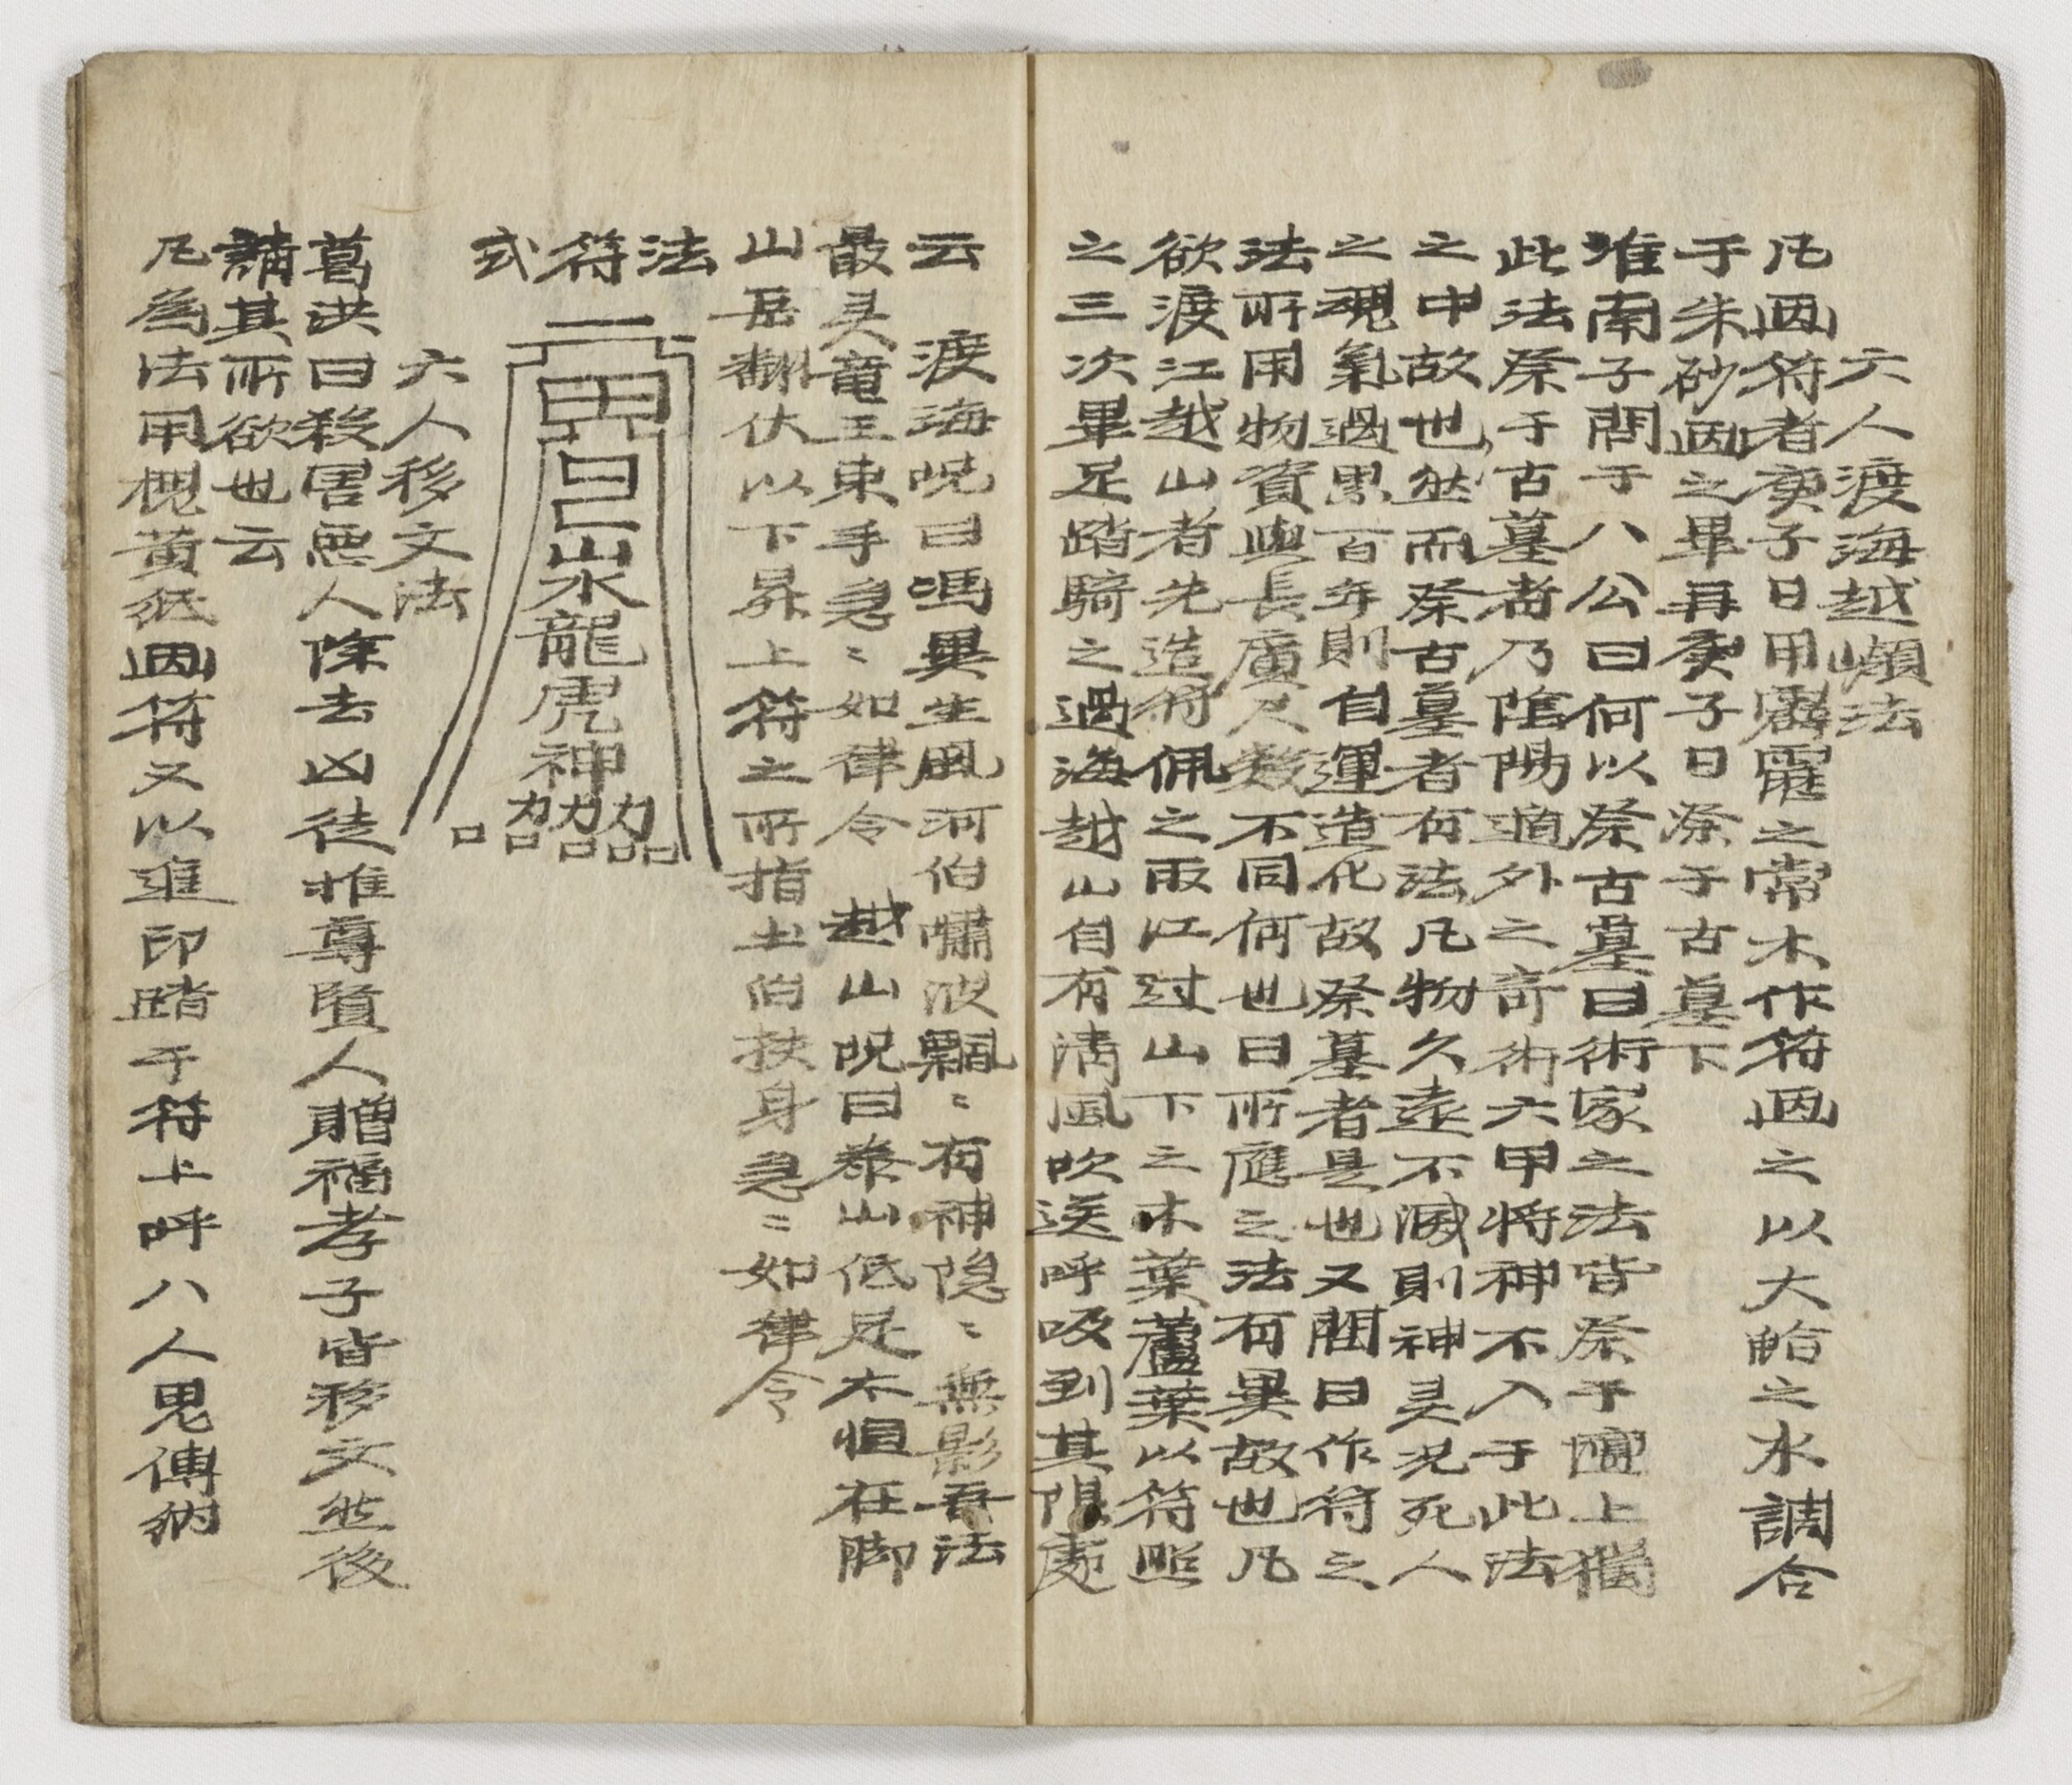 六人渡海越嶺法
凡画符者庚子日用霹靂之常木作符画之以大蛤之水調合
于朱砂画之畢再庚子日祭于古墓下
淮南子問于八公曰何以祭古墓曰術家之法皆祭于壇上猶
此法祭于古墓者乃陰陽遁外之奇術六甲将神不入于此法
之中故也然而祭古墓者有法凡物久遠不滅則神灵况死人
之魂氣過累百年則自運造化故祭墓者是也又問曰作符之
法所用物資與長廣尺数不同何也曰所應之法有異故也凡
欲渡江越山者先造符佩之取江过山下之木葉蘆葉以符照
之三次畢足踏騎之過海越山自有清風吹送呼吸到其限處
云 渡海呪曰馮異生風河伯嘯波飄〻有神隐〻無影吾法
最灵竜王束手急〻如律令 越山呪曰泰山低足木恒在脚
山岳翻伏以下昇上符之所指土伯扶身急〻如律令
法符式
水龍虎神
六人移文法
葛洪曰殺害惡人除去凶徒推尊賢人贈福孝子皆移文然後
請其所欲也云
凡為法用槐黄紙画符又以進印踏于符上呼八人鬼傳納